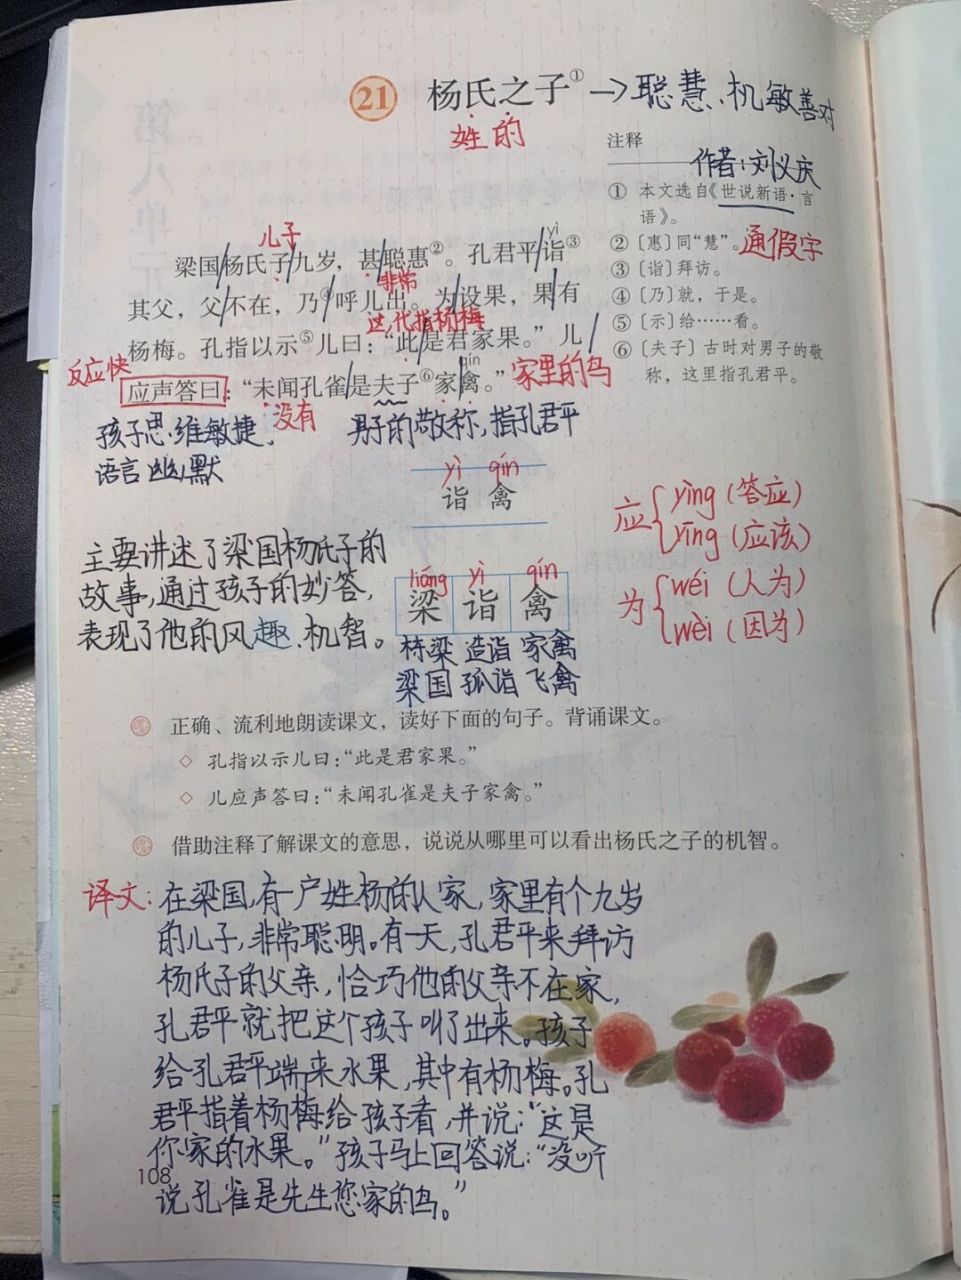 21 杨氏之子① →聪慧、机敏善对
姓 的
注释
作者:刘义庆
① 本文选自《世说新语·言
语》。
② 〔惠〕同“慧”。通假字
③ 〔诣〕拜访。
④ 〔乃〕就,于是。
⑤ 〔示〕给……看。
⑥ 〔夫子〕古时对男子的敬
称,这里指孔君平。
儿子
yì
梁国/杨氏子/九岁,甚/聪惠②。孔君平/诣③
非常
其父,父/不在,乃④/呼儿出。为/设果,果/有
这,代指杨梅
杨梅。孔指以示⑤儿曰:“此/是君家果。”儿/
反应快
qín
应声答曰:“未闻孔雀/是夫子⑥家/禽。” 家里的鸟
没有
孩子思维敏捷、
语言幽默
男子的敬称,指孔君平
yì qín
诣 禽
主要讲述了梁国杨氏子的
故事,通过孩子的妙答,
表现了他的风趣、机智。
liáng yì qín
梁 诣 禽
栋梁 造诣 家禽
梁国 孤诣 飞禽
应 { yìng (答应)
yīng (应该)
为 { wéi (人为)
wèi (因为)
正确、流利地朗读课文,读好下面的句子。背诵课文。
◇ 孔指以示儿曰:“此是君家果。”
◇ 儿应声答曰:“未闻孔雀是夫子家禽。”
借助注释了解课文的意思,说说从哪里可以看出杨氏之子的机智。
译文:在梁国,有一户姓杨的人家,家里有个九岁
的儿子,非常聪明。有一天,孔君平来拜访
杨氏子的父亲,恰巧他的父亲不在家,
孔君平就把这个孩子叫了出来。孩子
给孔君平端来水果,其中有杨梅。孔
君平指着杨梅给孩子看,并说:“这是
你家的水果。”孩子马上回答说:“没听
说孔雀是先生您家的鸟。”
108